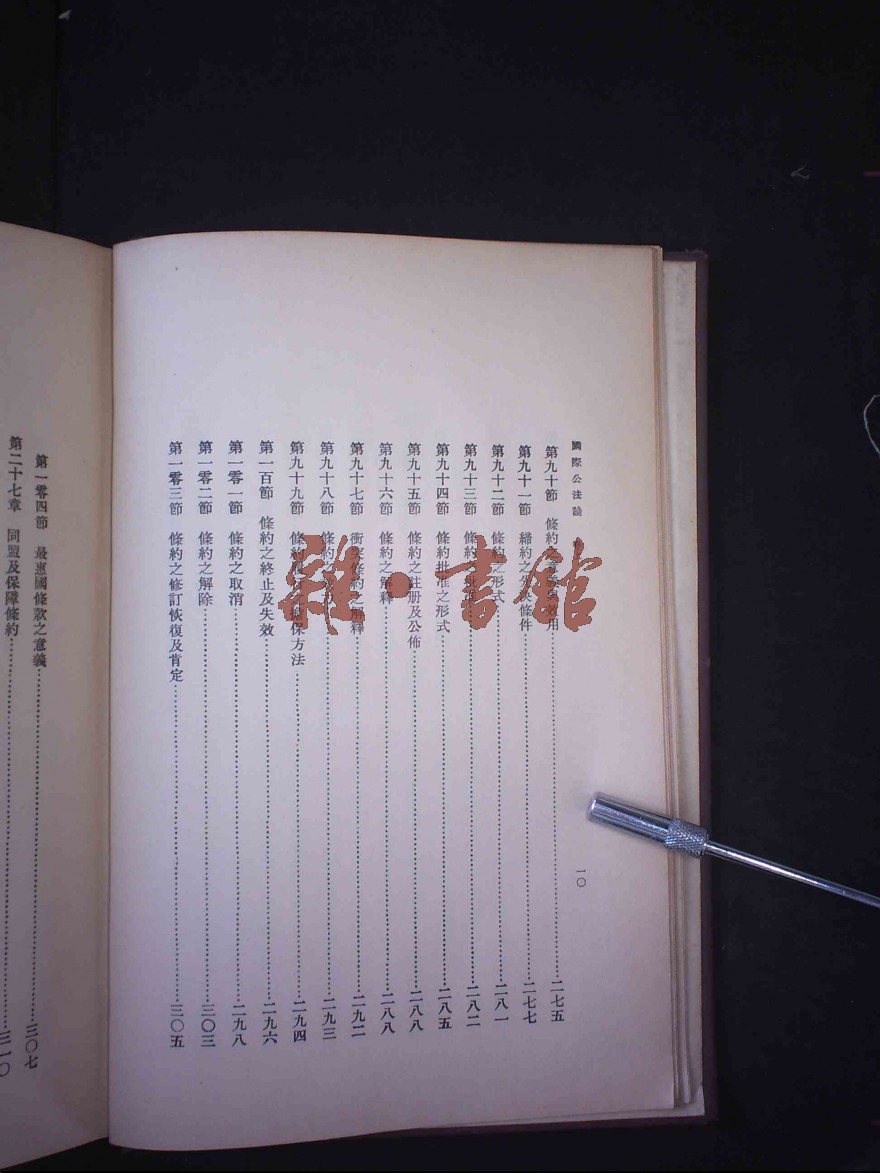 國際公法論
一〇
第九十節 條約之 效用 二七五
第九十一節 締約之 條件 二七七
第九十二節 條約之形式 二八一
第九十三節 條約 二八二
第九十四節 條約批准之形式 二八五
第九十五節 條約之註册及公佈 二八八
第九十六節 條約之解釋 二八八
第九十七節 衝突條約之解釋 二九二
第九十八節 條約 二九三
第九十九節 條約 保方法 二九四
第一百節 條約之終止及失效 二九六
第一零一節 條約之取消 二九八
第一零二節 條約之解除 三〇三
第一零三節 條約之修訂恢復及肯定 三〇五
第一零四節 最惠國條款之意義 三〇七
第二十七章 同盟及保障條約 三一〇
雜·書館